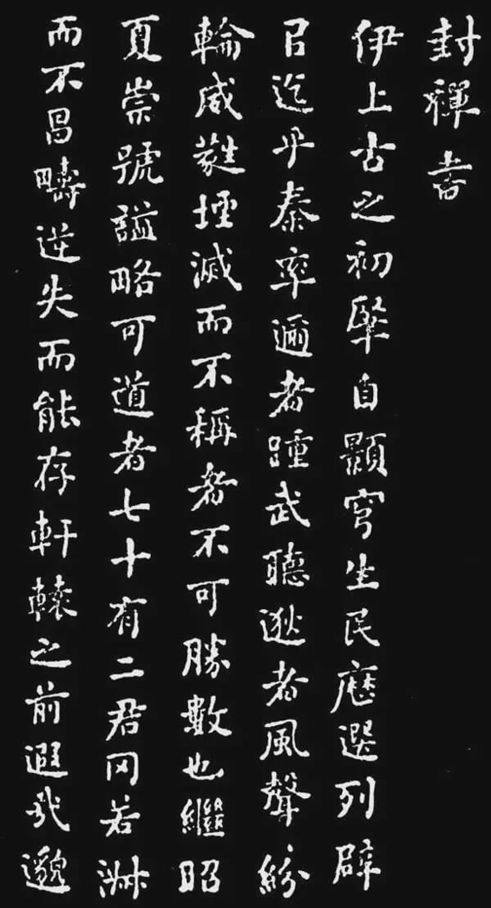 封禪書
伊上古之初肇自顥穹生民歷選列辟
㠯迄乎秦率邇者踵武聽逖者風聲紛
輪威蕤堙滅而不稱者不可勝數也繼昭
夏崇號謚略可道者七十有二君罔若淑
而不昌疇逆失而能存軒轅之前遐哉邈